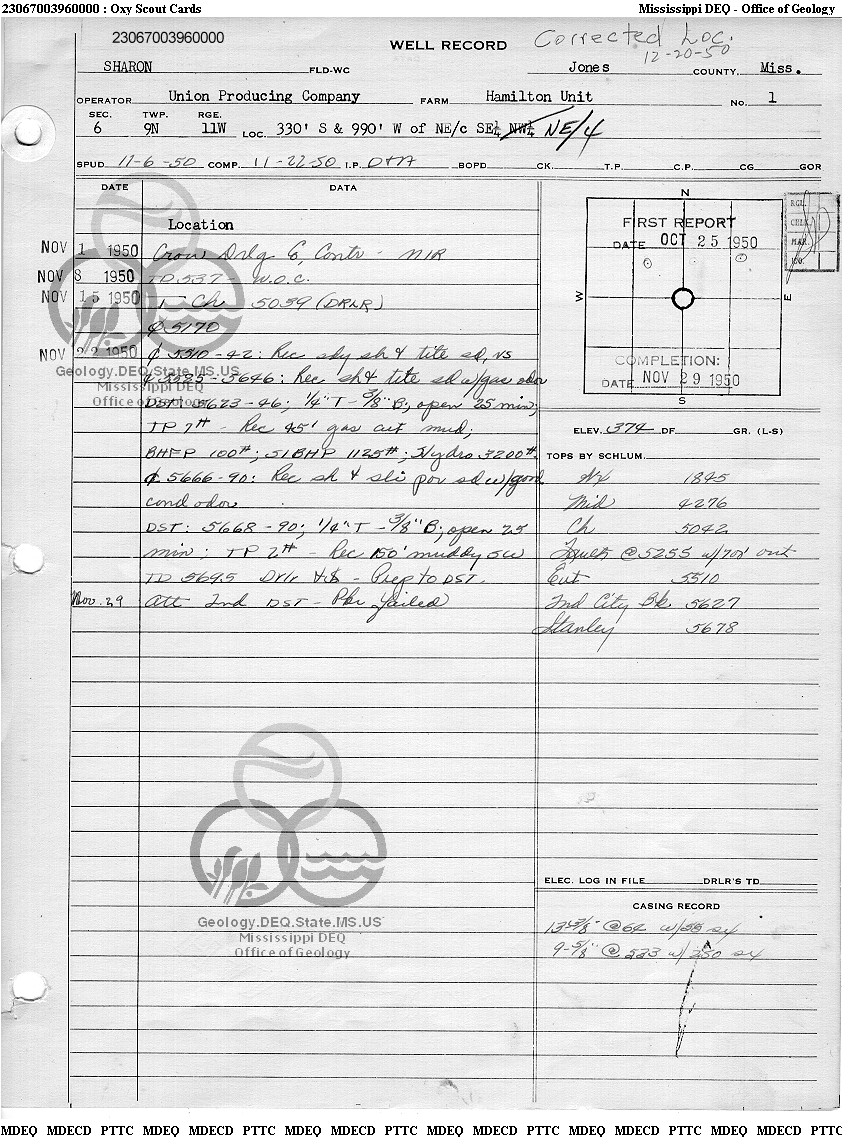 23067003960000 : Oxy Scout Cards Mississippi DEQ - Office of Geology
23067003960000
WELL RECORD
Corrected Loc.
12-20-50
SHARON FLD-WC Jones COUNTY, Miss.
OPERATOR Union Producing Company FARM Hamilton Unit No. 1
SEC. TWP. RGE.
6 9N 11W LOC. 330' S & 990' W of NE/c SE¼ NW¼ NE/4
SPUD 11-6-50 COMP. 11-22-50 I.P. D&A BOPD CK. T.P. C.P. CG GOR
DATE DATA
Location
NOV 1 1950 Crow Drlg Co, Contr - NIR
NOV 8 1950 TD 537 - W.O.C.
NOV 15 1950 T- Ch 5039 (DRLR)
₵ 5170
NOV 22 1950 ₵ 5510-42: Rec sdy sh & tite sd, NS
₵ 5525-5646: Rec sh & tite sd w/gas odor
DST: 5623-46; 1/4" T - 3/8" B; open 25 min;
TP 7# - Rec 45' gas cut mud;
BHFP 100#; SIBHP 1125#; Hydro 3200#.
₵ 5666-90: Rec sh & sli por sd w/good
cond odor
DST: 5668-90; 1/4" T - 3/8" B; open 25
min; TP 2# - Rec 150' muddy SW
TD 5695 Drlr - Prep to DST.
Nov. 29 Att 2nd DST - Pkr failed
N
W
E
S
FIRST REPORT
DATE OCT 25 1950
COMPLETION:
DATE NOV 29 1950
RGL.
MAR.
ELEV. 374 DF GR. (L-S)
TOPS BY SCHLUM.
Wx 1845
Mid 4276
Ch 5042
Fault @ 5255 w/70' out
Eut 5510
2nd City Bk 5627
Stanley 5678
ELEC. LOG IN FILE DRLR'S TD
CASING RECORD
13-3/8" @ 64 w/55 sx
9-5/8" @ 523 w/250 sx
Geology.DEQ.State.MS.US
Mississippi DEQ
Office of Geology
Geology.DEQ.State.MS.US
Mississippi DEQ
Office of Geology
MDEQ MDECD PTTC MDEQ MDECD PTTC MDEQ MDECD PTTC MDEQ MDECD PTTC MDEQ MDECD PTTC MDEQ MDECD PTTC